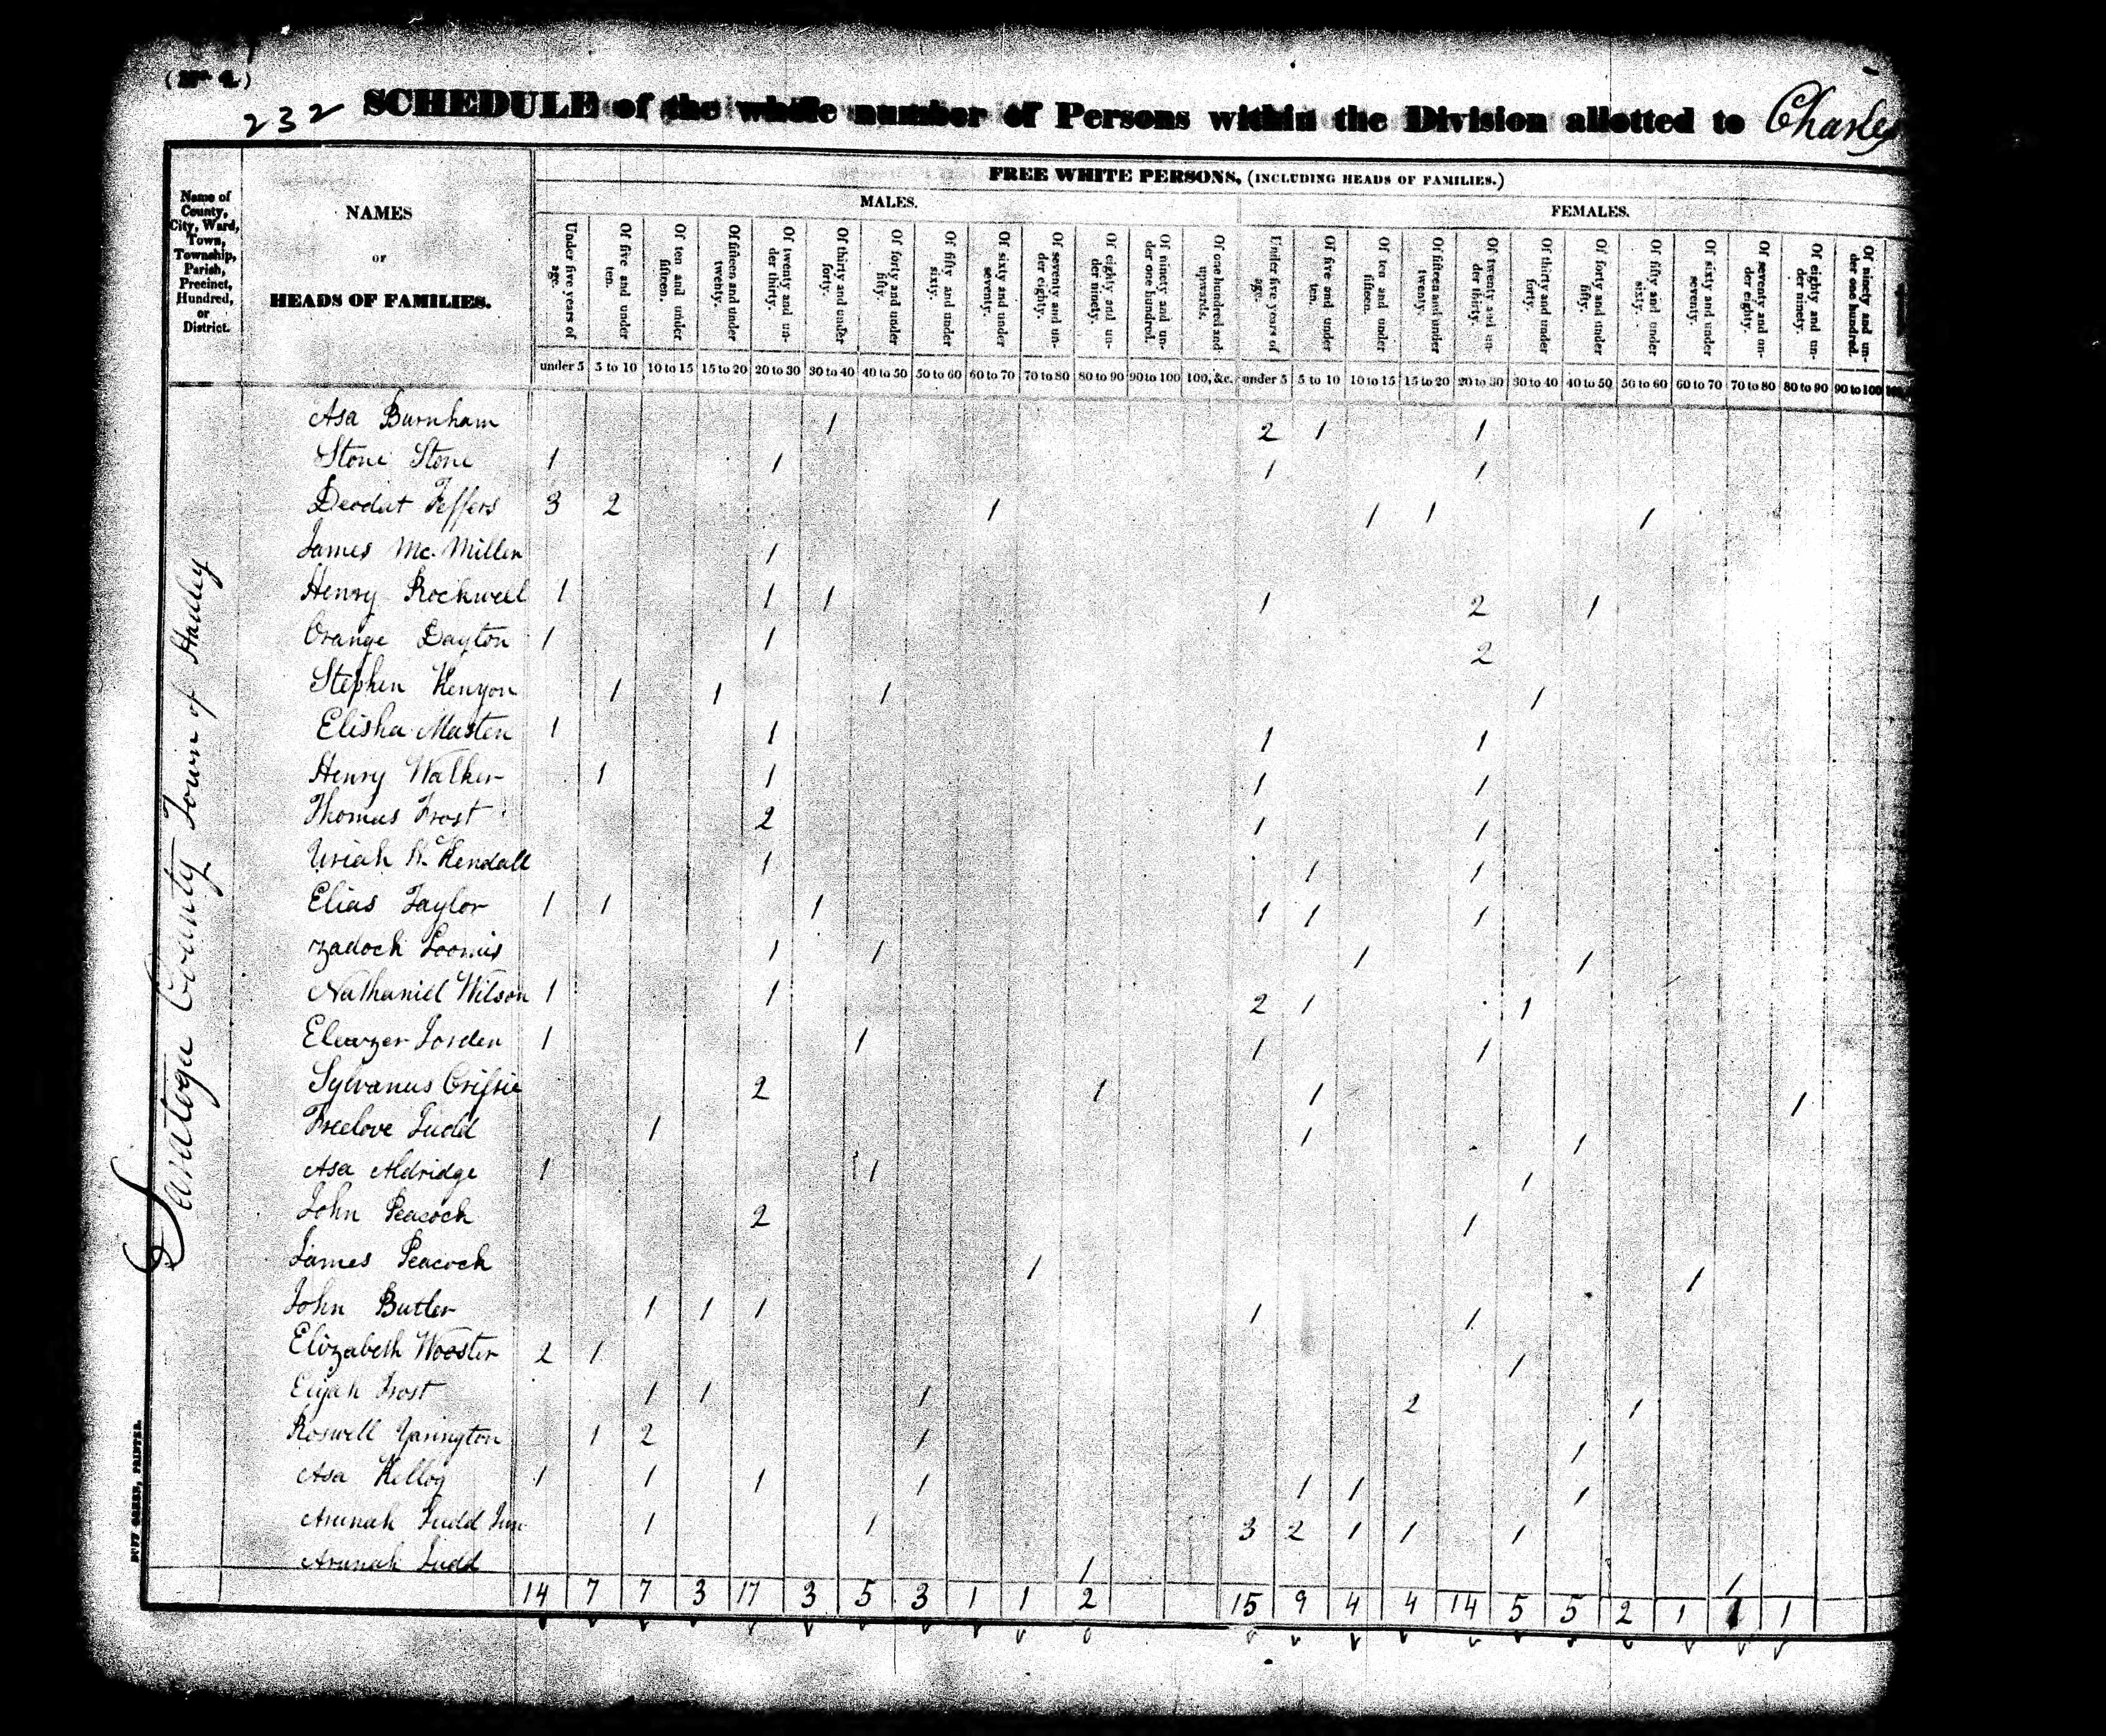 (No 4)
232 SCHEDULE of the whole number of Persons within the Division allotted to Charles
FREE WHITE PERSONS, (INCLUDING HEADS OF FAMILIES.)
MALES. FEMALES.
Name of County, City, Ward, Town, Township, Parish, Precinct, Hundred, or District.
NAMES
or
HEADS OF FAMILIES.
Under five years of age. Of five and under ten. Of ten and under fifteen. Of fifteen and under twenty. Of twenty and under thirty. Of thirty and under forty. Of forty and under fifty. Of fifty and under sixty. Of sixty and under seventy. Of seventy and under eighty. Of eighty and under ninety. Of ninety and under one hundred. Of one hundred and upwards. Under five years of age. Of five and under ten. Of ten and under fifteen. Of fifteen and under twenty. Of twenty and under thirty. Of thirty and under forty. Of forty and under fifty. Of fifty and under sixty. Of sixty and under seventy. Of seventy and under eighty. Of eighty and under ninety. Of ninety and under one hundred.
under 5 5 to 10 10 to 15 15 to 20 20 to 30 30 to 40 40 to 50 50 to 60 60 to 70 70 to 80 80 to 90 90 to 100 100, &c. under 5 5 to 10 10 to 15 15 to 20 20 to 30 30 to 40 40 to 50 50 to 60 60 to 70 70 to 80 80 to 90 90 to 100
Saratoga County Town of Hadley
Asa Burnham 1 2 1 1
Stone Stone 1 1 1 1
Deodat Jeffers 3 2 1 1 1 1
James Mc Miller 1
Henry Rockwell 1 1 1 1 2 1
Orange Dayton 1 1 2
Stephen Kenyon 1 1 1 1
Elisha Masten 1 1 1 1
Henry Walker 1 1 1 1
Thomas Frost 2 1 1
Uriah Kendall 1 1 1
Elias Taylor 1 1 1 1 1 1
Zadock Loomis 1 1 1 1
Nathaniel Wilson 1 1 2 1 1
Eleazer Jorden 1 1 1 1
Sylvanus 2 1 1 1
Freelove Judd 1 1 1
Asa Aldridge 1 1 1
John Peacock 2 1
James Peacock 1 1
John Butler 1 1 1 1 1
Elizabeth Wooster 2 1 1
Elijah Frost 1 1 1 2 1
Roswell Yarington 1 2 1 1
Asa Kellog 1 1 1 1 1 1 1
Arunah Judd Jun 1 1 3 2 1 1 1
Arunah Judd 1 1
14 7 7 3 17 3 5 3 1 1 2 15 9 4 4 14 5 5 2 1 1 1